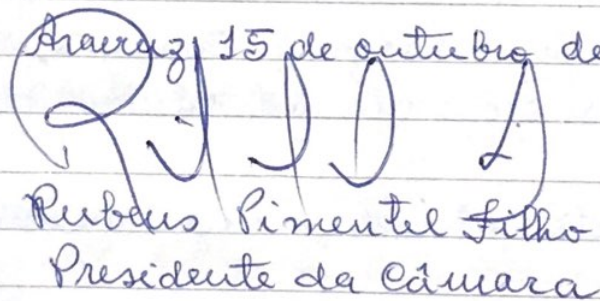 Aracruz, 15 de outubro de
Rubens Pimentel Filho
Presidente da Câmara